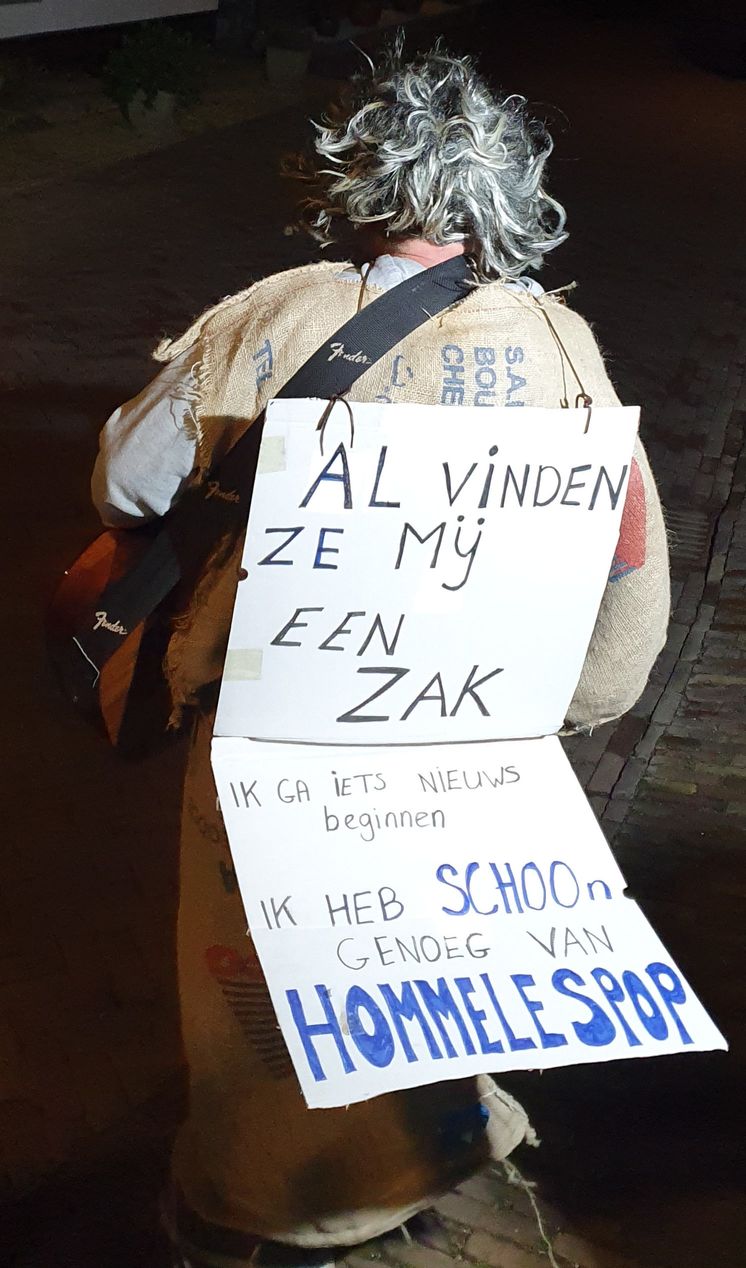 Fender
S.A.I
BOU
CHE
Fender
Fender
AL VINDEN
ZE MIJ
EEN
ZAK
IK GA iETS NIEUWS
beginnen
IK HEB SCHOOn
GENOEG VAN
HOMMELESPOP